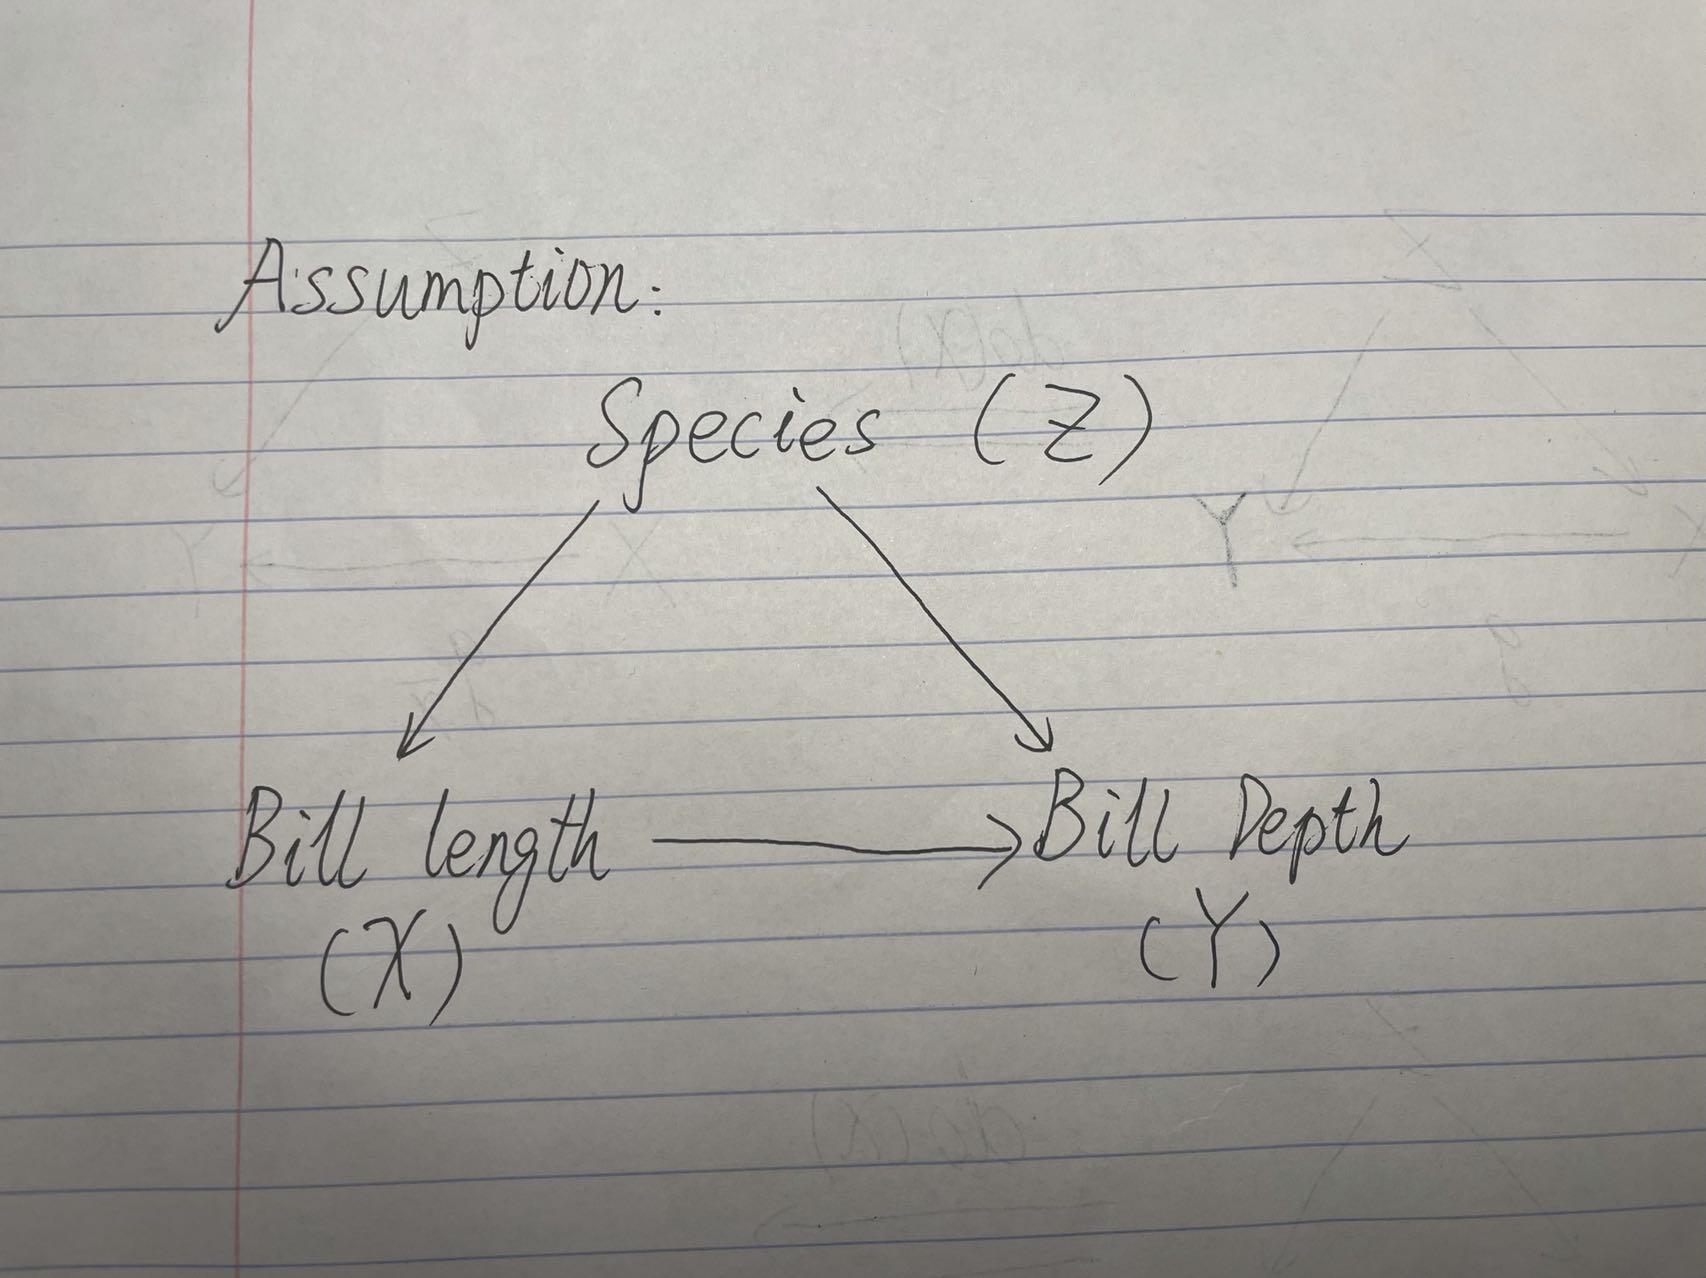 Assumption:
Species (Z)
Bill length
Bill Depth
(X)
(Y)
Y